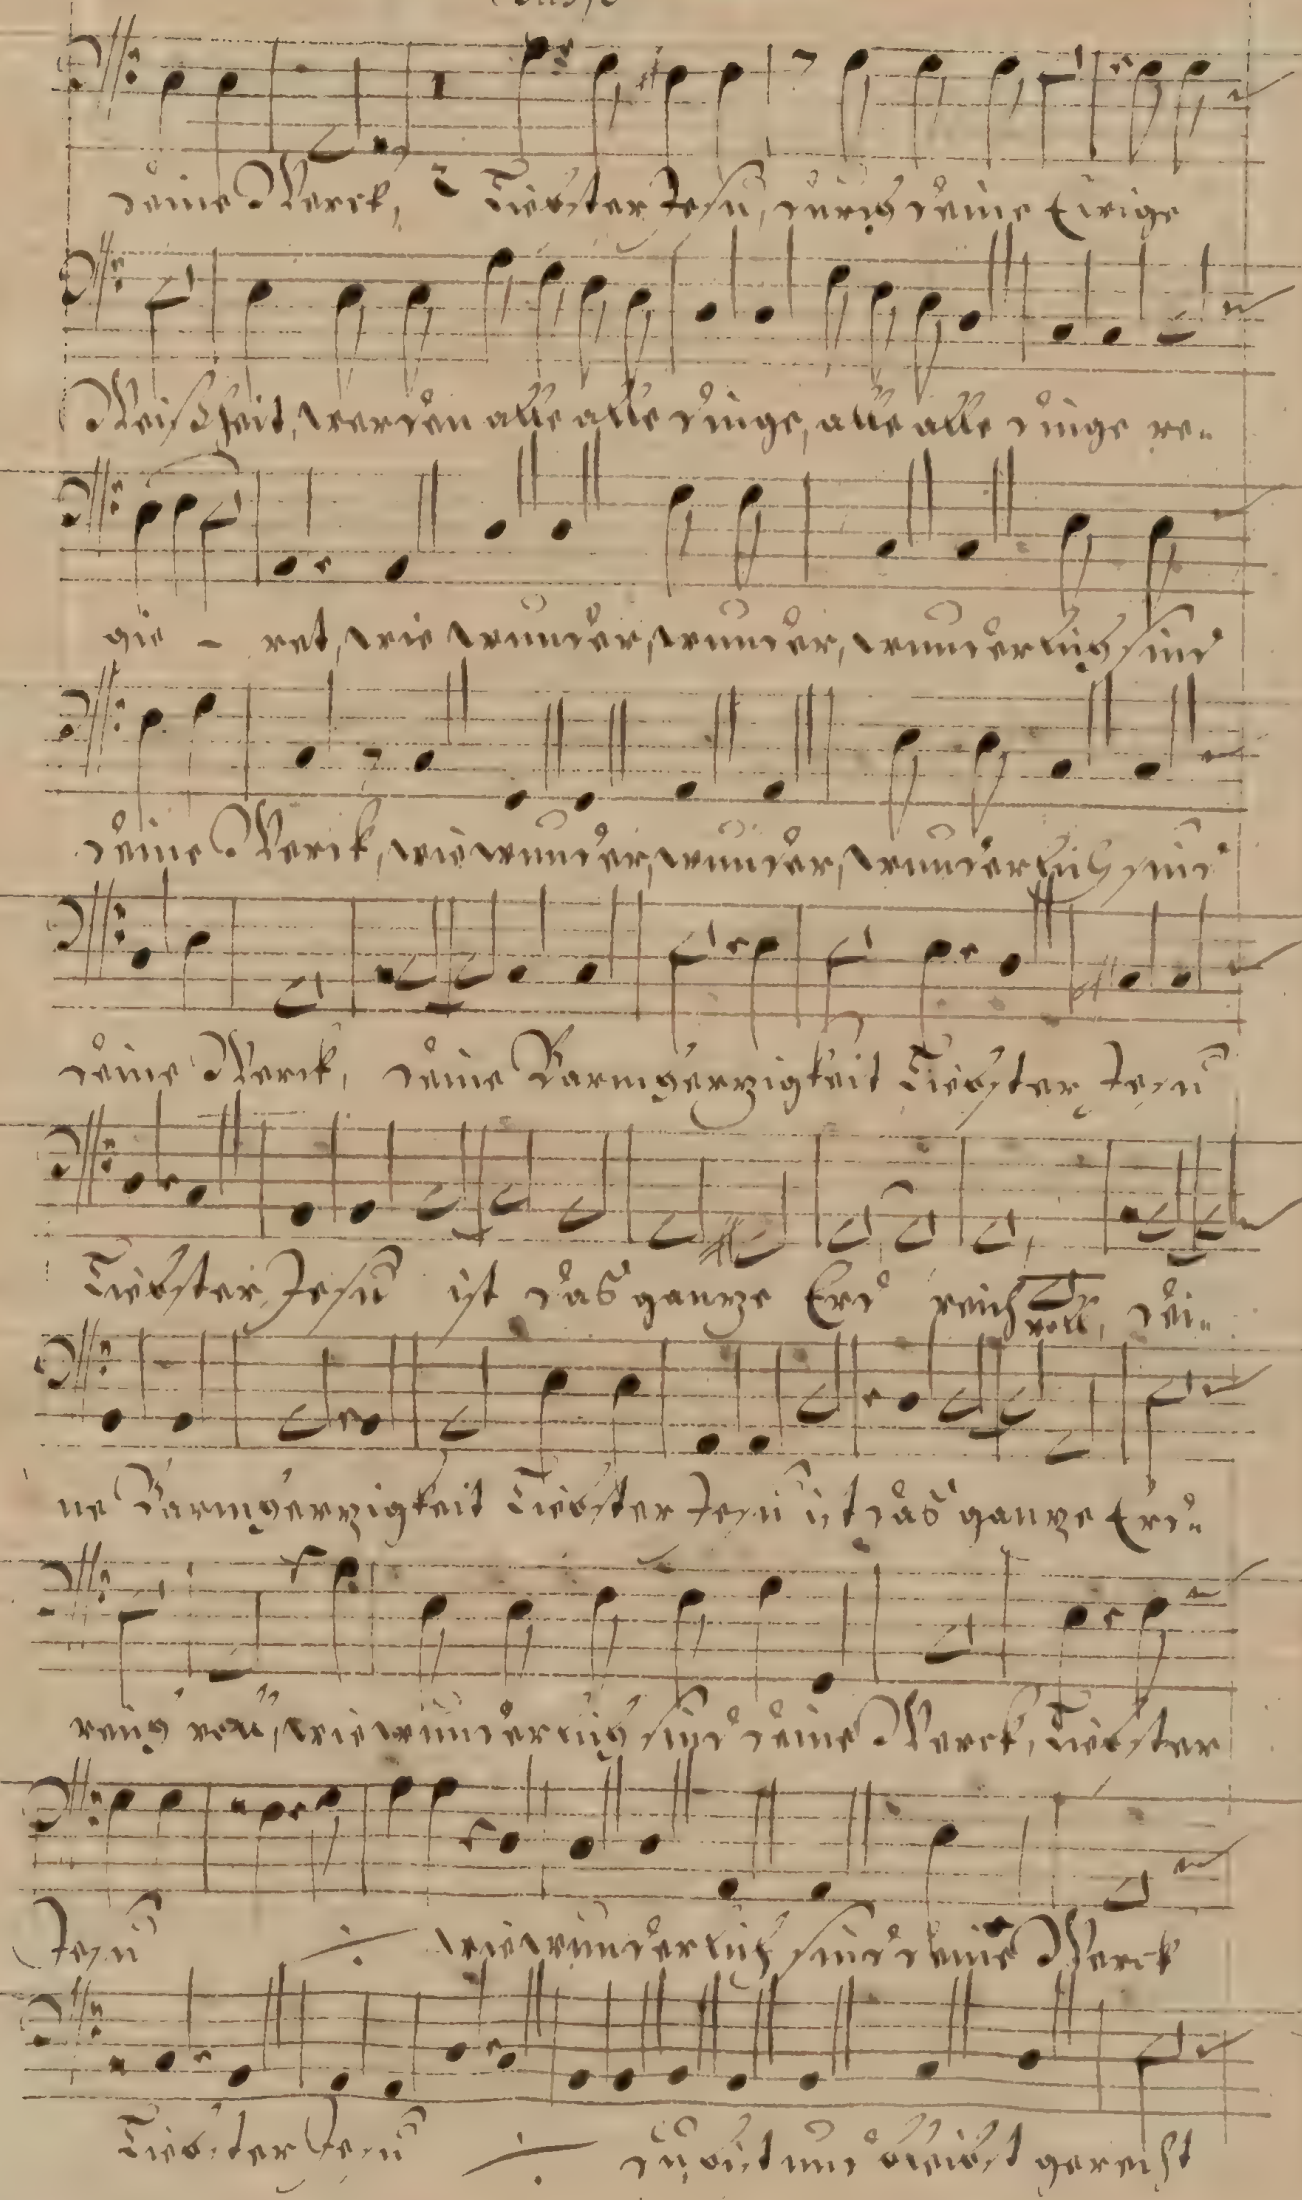 Basso
deine Werck, Liebster Jesu, durch deine Ewige
Weißheit, werden alle alle dinge, alle alle dinge re=
gie - ret, wie wunder, wunder, wunderlich sind
deine Werck, wie wunder, wunder, wunderlich sind
deine Werck, deine Barmherzigkeit Liebster Jesu
Liebster Jesu ist das ganze Erd reich voll, dei=
ne Barmherzigkeit Liebster Jesu ist das ganze Erd=
reich voll, wie wunderlich sind deine Werck, Liebster
Jesu ·/· wie wunderlich sind deine Werck
Liebster Jesu ·/· du bist und bleibst gerecht